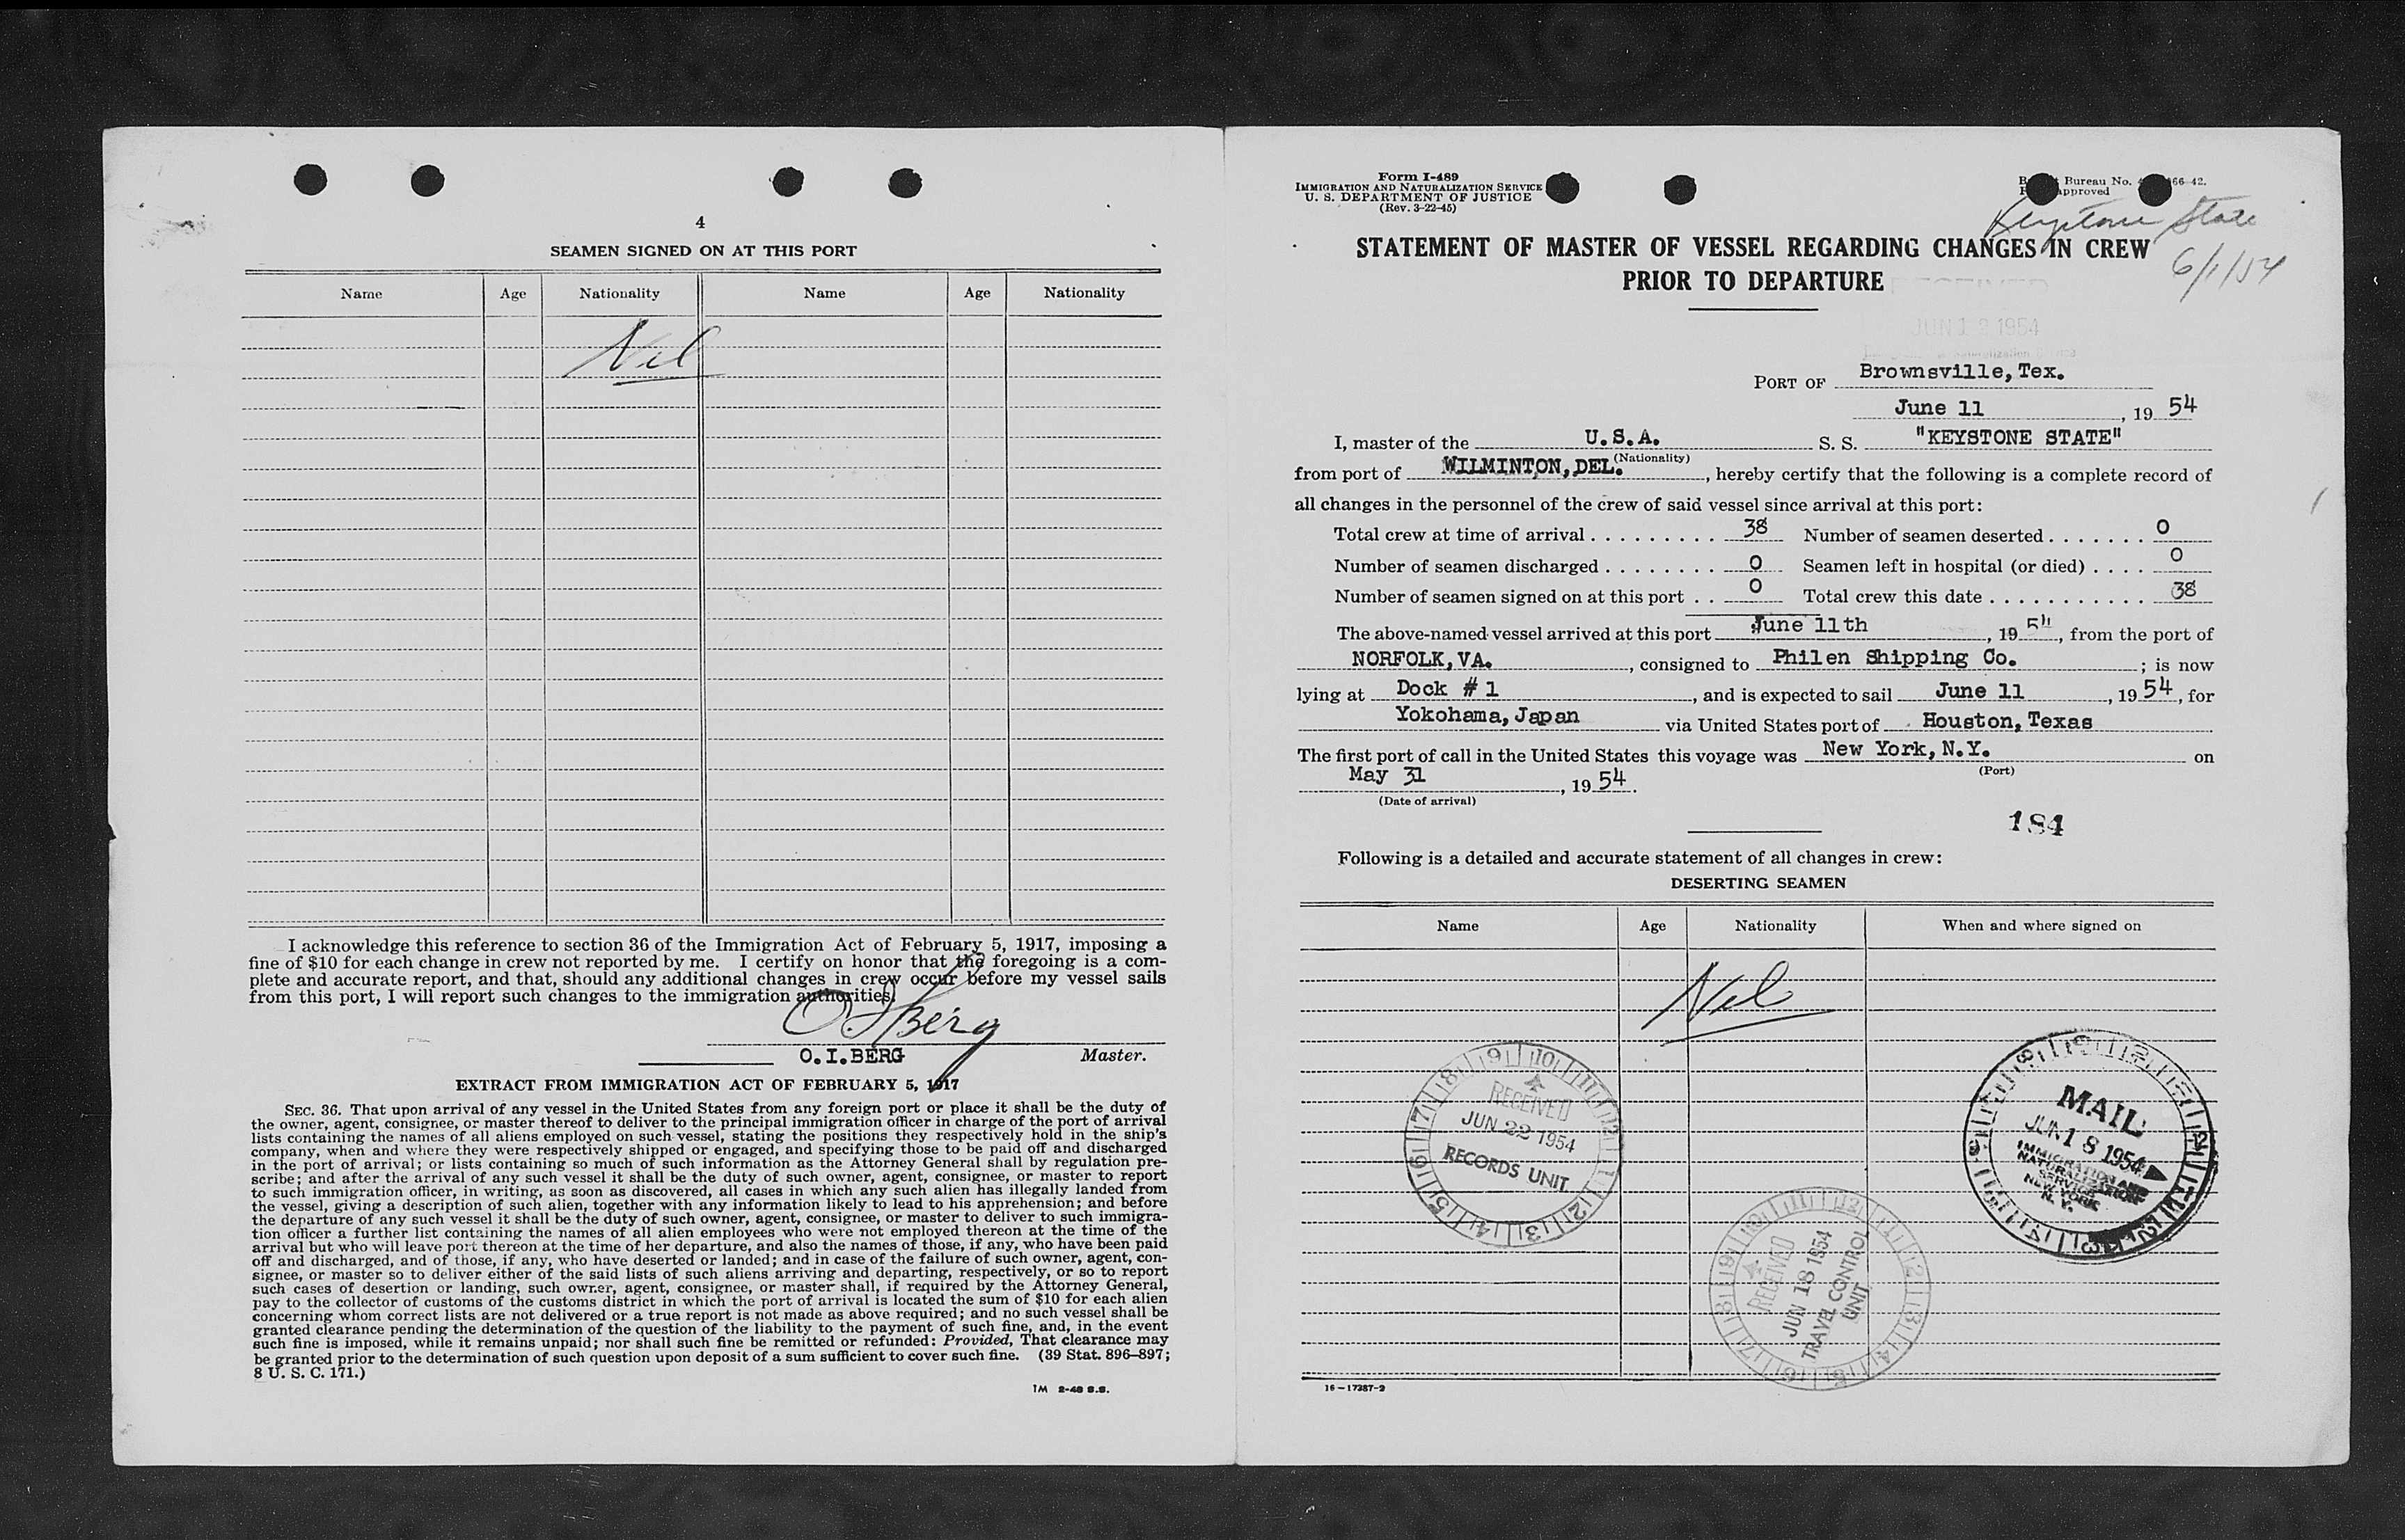 4
SEAMEN SIGNED ON AT THIS PORT
Name Age Nationality Name Age Nationality
Nil
I acknowledge this reference to section 36 of the Immigration Act of February 5, 1917, imposing a
fine of $10 for each change in crew not reported by me. I certify on honor that the foregoing is a com-
plete and accurate report, and that, should any additional changes in crew occur before my vessel sails
from this port, I will report such changes to the immigration authorities.
O I Berg
O.I.BERG Master.
EXTRACT FROM IMMIGRATION ACT OF FEBRUARY 5, 1917
SEC. 36. That upon arrival of any vessel in the United States from any foreign port or place it shall be the duty of
the owner, agent, consignee, or master thereof to deliver to the principal immigration officer in charge of the port of arrival
lists containing the names of all aliens employed on such vessel, stating the positions they respectively hold in the ship's
company, when and where they were respectively shipped or engaged, and specifying those to be paid off and discharged
in the port of arrival; or lists containing so much of such information as the Attorney General shall by regulation pre-
scribe; and after the arrival of any such vessel it shall be the duty of such owner, agent, consignee, or master to report
to such immigration officer, in writing, as soon as discovered, all cases in which any such alien has illegally landed from
the vessel, giving a description of such alien, together with any information likely to lead to his apprehension; and before
the departure of any such vessel it shall be the duty of such owner, agent, consignee, or master to deliver to such immigra-
tion officer a further list containing the names of all alien employees who were not employed thereon at the time of the
arrival but who will leave port thereon at the time of her departure, and also the names of those, if any, who have been paid
off and discharged, and of those, if any, who have deserted or landed; and in case of the failure of such owner, agent, con-
signee, or master so to deliver either of the said lists of such aliens arriving and departing, respectively, or so to report
such cases of desertion or landing, such owner, agent, consignee, or master shall, if required by the Attorney General,
pay to the collector of customs of the customs district in which the port of arrival is located the sum of $10 for each alien
concerning whom correct lists are not delivered or a true report is not made as above required; and no such vessel shall be
granted clearance pending the determination of the question of the liability to the payment of such fine, and, in the event
such fine is imposed, while it remains unpaid; nor shall such fine be remitted or refunded: Provided, That clearance may
be granted prior to the determination of such question upon deposit of a sum sufficient to cover such fine. (39 Stat. 896-897;
8 U. S. C. 171.)
1M 2-48 S.S.
Form I-489
IMMIGRATION AND NATURALIZATION SERVICE
U. S. DEPARTMENT OF JUSTICE
(Rev. 3-22-45)
Bureau No. 66-42.
approved
Keystone State
6/1/54
STATEMENT OF MASTER OF VESSEL REGARDING CHANGES IN CREW
PRIOR TO DEPARTURE
JUN 12 1954
PORT OF Brownsville, Tex.
June 11, 19 54
I, master of the U.S.A. S. S. "KEYSTONE STATE"
(Nationality)
from port of WILMINTON, DEL., hereby certify that the following is a complete record of
all changes in the personnel of the crew of said vessel since arrival at this port:
Total crew at time of arrival . . . . . . . . . 38 Number of seamen deserted . . . . . . . 0
Number of seamen discharged . . . . . . . . 0 Seamen left in hospital (or died) . . . . 0
Number of seamen signed on at this port . . 0 Total crew this date . . . . . . . . . . . 38
The above-named vessel arrived at this port June 11th, 19 54, from the port of
NORFOLK, VA., consigned to Philen Shipping Co.; is now
lying at Dock # 1, and is expected to sail June 11, 19 54, for
Yokohama, Japan via United States port of Houston, Texas
The first port of call in the United States this voyage was New York, N.Y. on
(Port)
May 31, 19 54.
(Date of arrival)
184
Following is a detailed and accurate statement of all changes in crew:
DESERTING SEAMEN
Name Age Nationality When and where signed on
Nil
RECEIVED
JUN 22 1954
RECORDS UNIT
MAIL
JUN 18 1954
IMMIGRATION AND
NATURALIZATION
SERVICE
NEW YORK
N. Y.
RECEIVED
JUN 18 1954
TRAVEL CONTROL
UNIT
16-17387-2